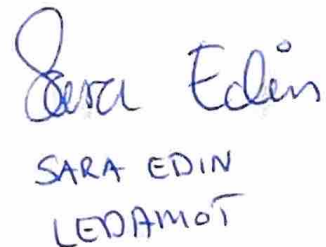 Sara Edin
SARA EDIN
LEDAMOT